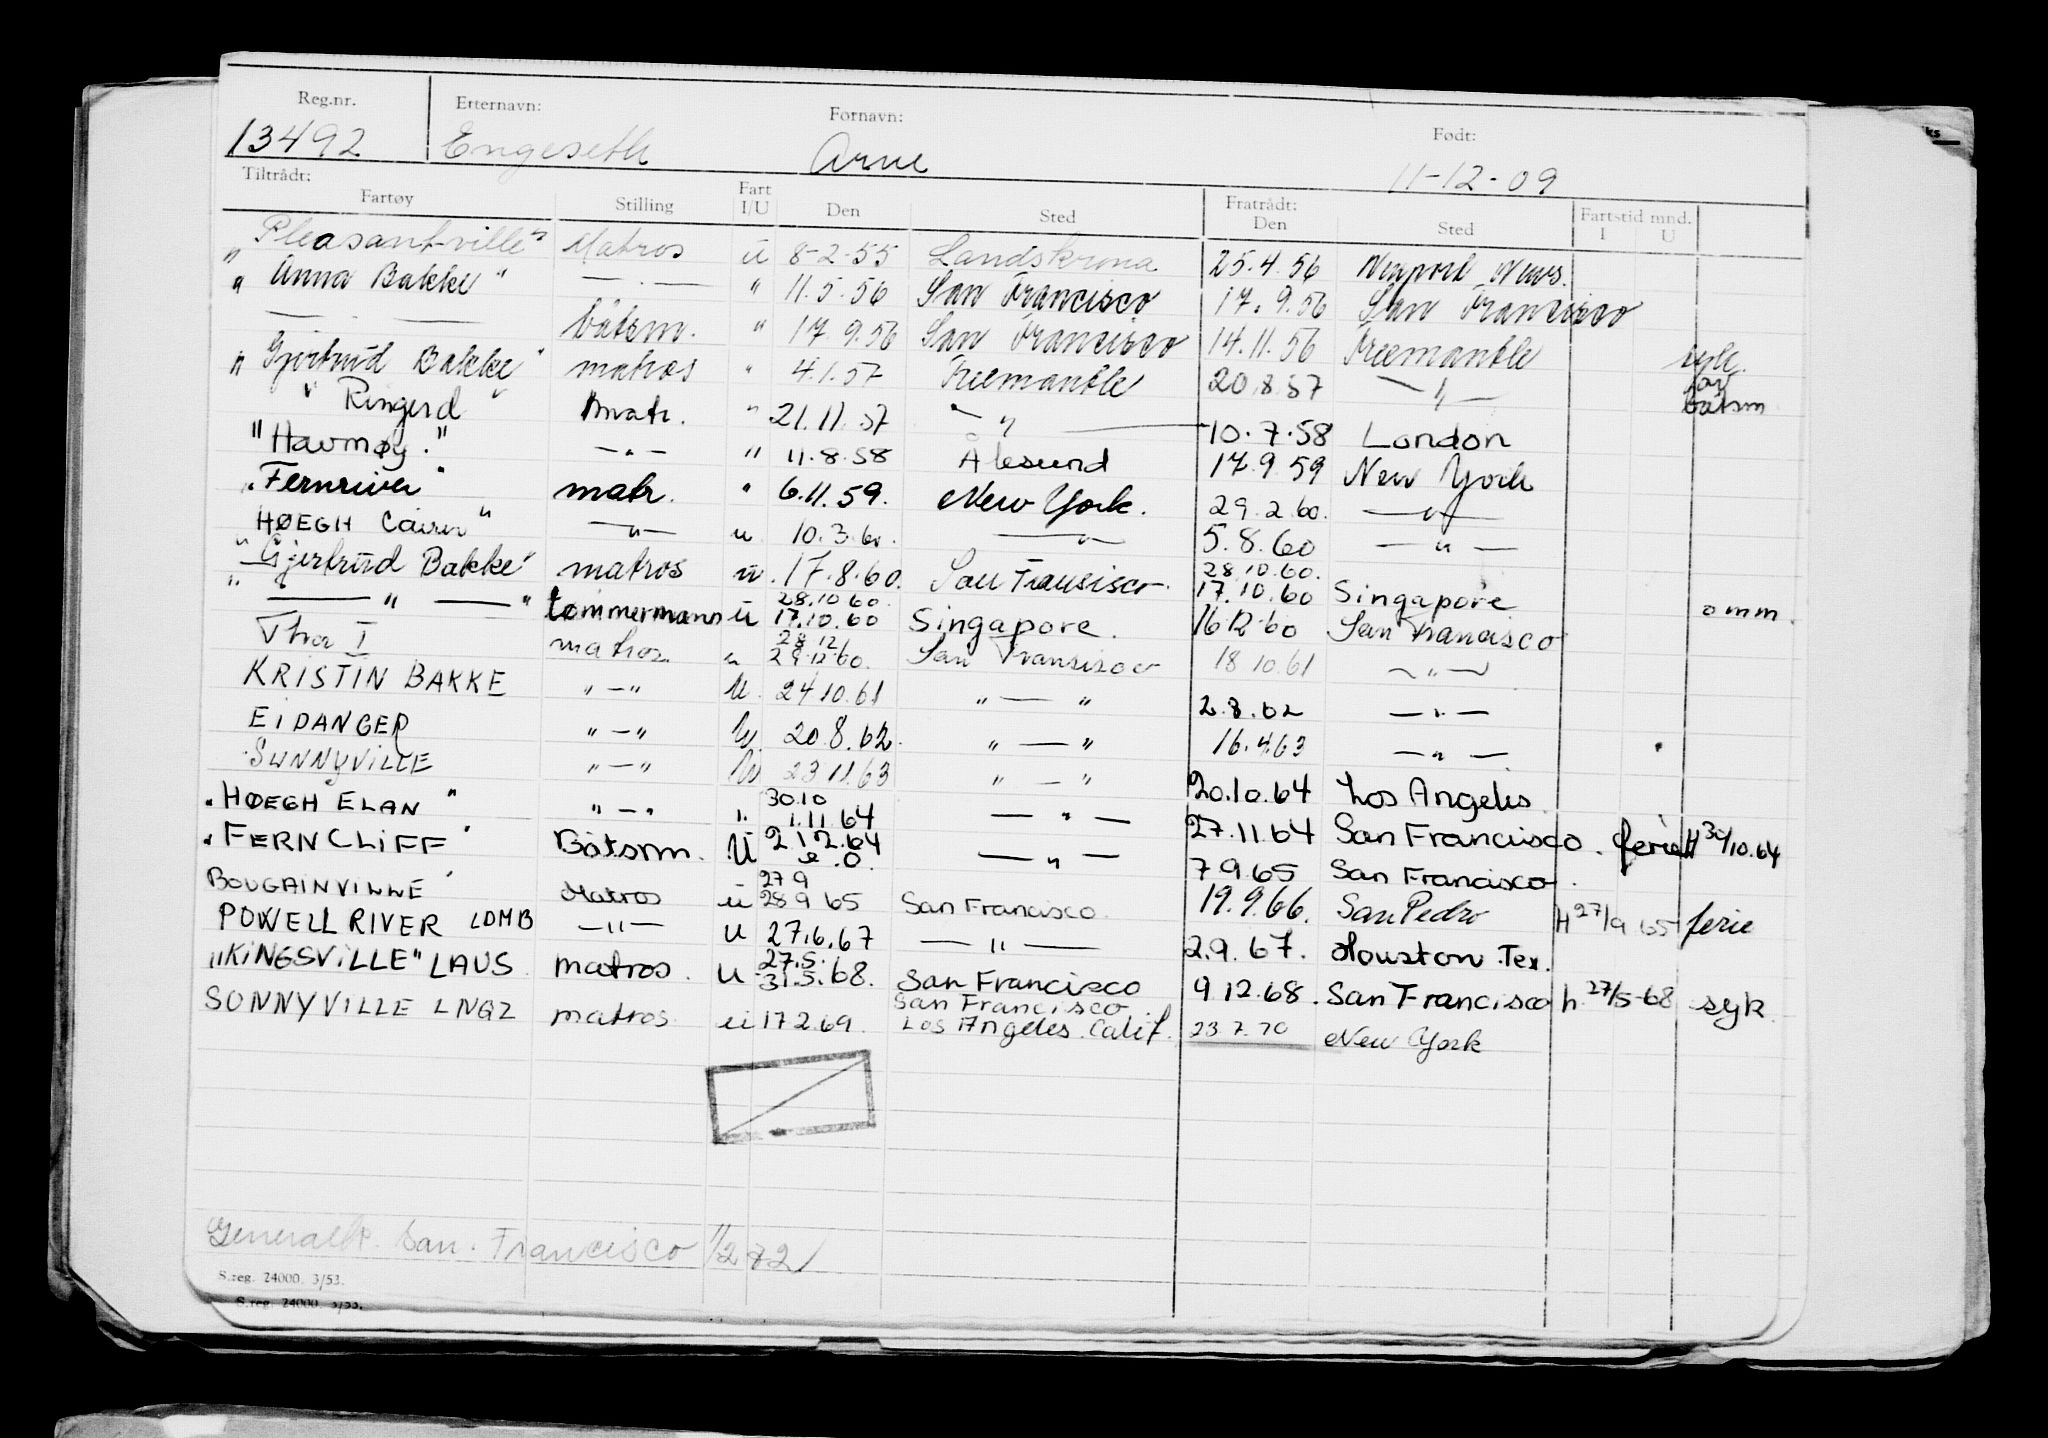 Reg.nr. Etternavn: Fornavn: Født:
13492 Engeseth Arne 11-12-09
Tiltrådt: Fratrådt:
Fartøy Stilling Fart I/U Den Sted Den Sted Fartstid mnd. I U
"Pleasantville" Matros ü 8-2-55 Landskrona 25.4.56 Newport News.
"Anna Bakke" — . — " 11.5.56 San Francisco 17.9.56 San Francisco
— . — båtsm. " 17.9.56 San Francisco 14.11.56 Freemantle syk.
"Gjertrud Bakke" matros " 4.1.57 Freemantle 20.8.57 — " — for båtsm
"Ringerd" matr. " 21.11.57 — " — 10.7.58 London
"Havmøy." — " — " 11.8.58 Ålesund 17.9.59 New York
"Fernriver" matr. " 6.11.59. New York. 29.2.60. — " —
HØEGH Cairn" — " — u. 10.3.60. — " — 5.8.60 — " —
"Gjertrud Bakke" matros ü. 17.8.60. San Fransisco. 28.10.60. 17.10.60 Singapore
" — " — " tømmermann ü 28.10.60. 17.10.60 Singapore. 16.12.60 San Francisco omm.
Thor I matros " 28.12 29.12.60. San Fransisco 18.10.61 — " —
KRISTIN BAKKE " — " U. 24.10.61 " — " 2.8.62 — " —
EIDANGER " — " U. 20.8.62. " — " 16.4.63 — " —
SUNNYVILLE " — " U 23.11.63 " — " 20.10.64 Los Angeles
"HØEGH ELAN" " — " ". 30.10 1.11.64 — " — 27.11.64 San Francisco. ferie H 30/10.64
"FERNCLIFF" Båtsm. Ü 2.12.64 — " — 7.9.65 San Francisco.
BOUGAINVILLE" Matros ü 27 9 28 9 65 San Francisco. 19.9.66. San Pedro H 27/9 65 ferie
POWELL RIVER LDMB — " — U 27.6.67 — " — 2.9.67. Houston.Tex.
"KINGSVILLE" LAUS matros. U 27.5. 31.5.68. San Francisco 9.12.68. San Francisco h. 27/5-68 syk.
SONNYVILLE LNQZ matros. ü 17 2.69. San Francisco. Los Angeles. Calif. 23.7.70 New York
Generalk. San. Francisco 1/2 72
S.reg. 24000. 3/53.
S.reg. 24000. 3/53.